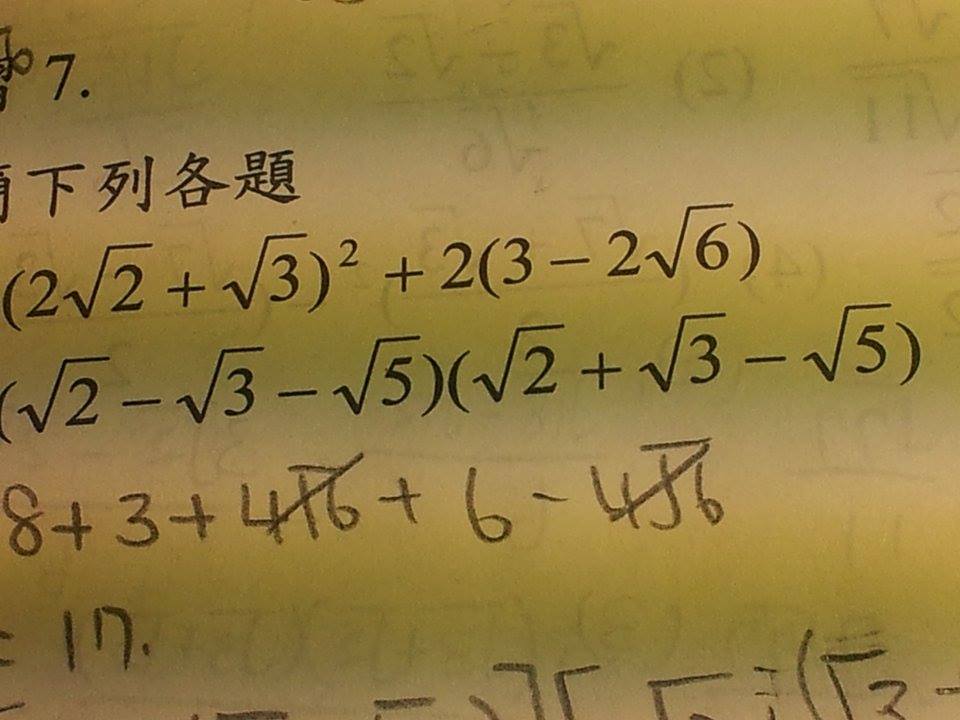 習 7.
下列各題
(2√2 + √3)² + 2(3 − 2√6)
(√2 − √3 − √5)(√2 + √3 − √5)
8 + 3 + 4√6 + 6 − 4√6
= 17.